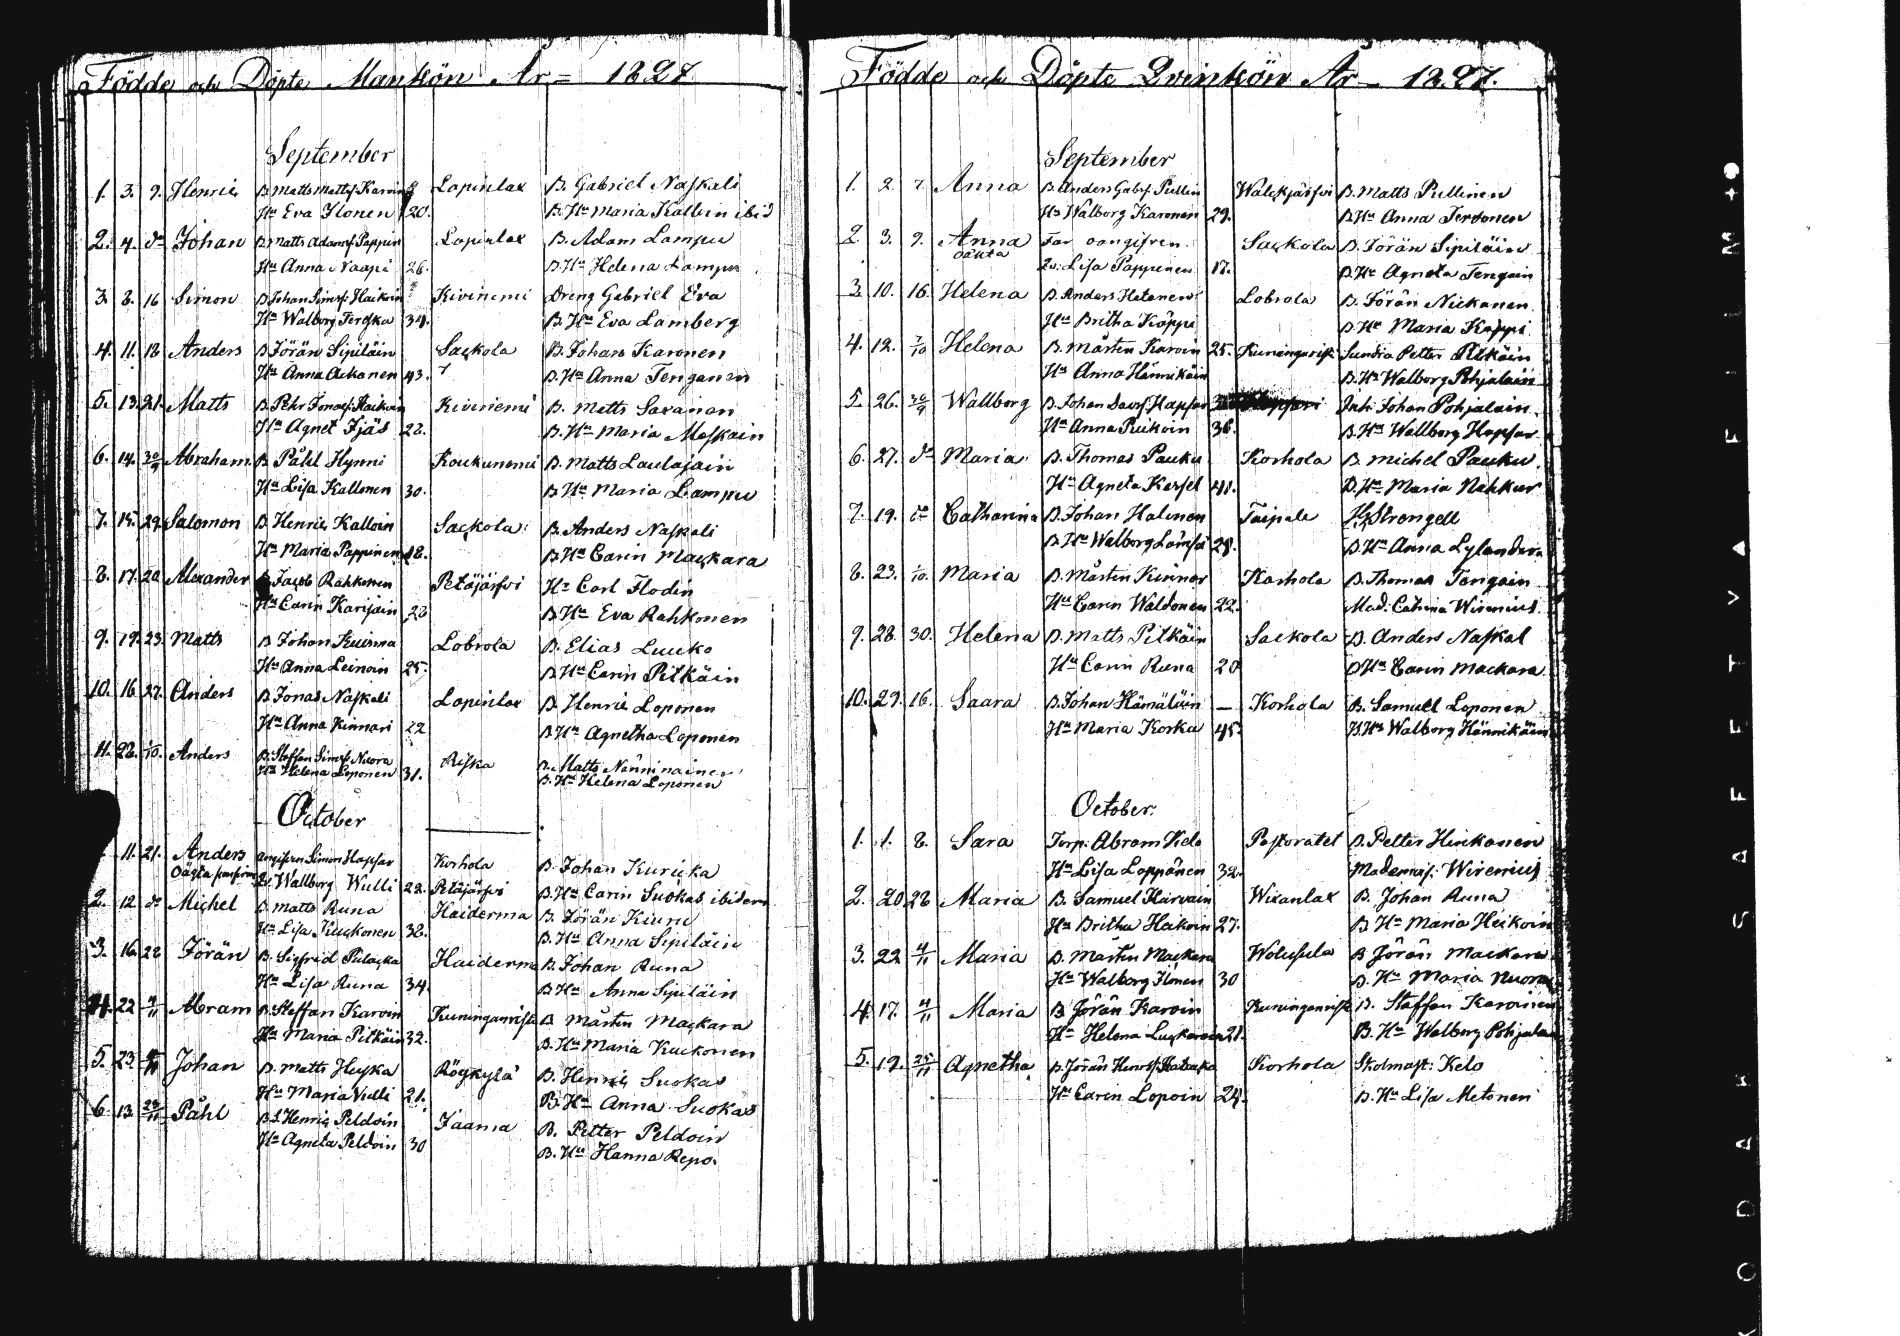 Födde och Döpte Mankön År = 1827
September
1. 3. 9. Henric B. Matts Matts: Karvin Lapinlax B. Gabriel Naskali
Hu Eva Ilonen 20. B. Hu Maria Kallin ibid
2. 4. do Johan B. Matts Adamss: Pappin Lapinlax B. Adam Lampu
Hu Anna Naapi 26. B. Hu Helena Lampu
3. 8. 16 Simon B. Johan Simss: Haikoin Kivinemi Dreng Gabriel Eva
Hu Walborg Terfka 34. B. Hu Eva Lamberg
4. 11. 18 Anders B. Jörän Sipiläin Sackola B. Johan Karonen
Hu Anna Ackanen 43. B. Hu Anna Tenganen
5. 13. 21. Matts B. Pehr Haikoin Kiviniemi B. Matts Savanen
Hu Agnet Fjäs 28. B. Hu Maria Maskain
6. 14. 30/9 Abraham B. Påhl Hynni Koukunemi B. Matts Laulajain
Hu Lisa Kallonen 30. B. Hu Maria Lampu
7. 15. 29. Salomon B. Henric Kalloin Sackola: B. Anders Naskali
Hu Maria Pappinen 48. B Hu Carin Mackara
8. 17. 20 Alexander B. Jacob Rahkonen Petäjärfvi Hr Carl Flodin
Hu Carin Karijain 28 B Hu Eva Rahkonen
9. 19. 23. Matts B Johan Kuinna Lobrola B. Elias Luuko
Hu Anna Leinoin 25. B Hu Carin Pitkäin
10. 16 27. Anders B Jonas Naskali Lapinlax B. Henric Loponen
Hu Anna Kinnari 22 B Hu Agnetha Loponen
11. 28. 1/10. Anders B. Staffan Simss: Nuora Riska B. Matts Nänninainen
Hu Helena Loponen 31. B. Hu Helena Loponen
October
11. 21. Anders Simon Hapsar Korhola B. Johan Kurikka
Oägta Walborg Wulli 23. Petäjärfvi B. Hu Carin Suokas ibidem
2. 12 do Michel B. Matts Runa Haiderma B. Jörän Kiuru
Hu Lisa Kuckonen 38. B. Hu Anna Sipiläin
3. 16. 28 Jörän B. Sigfrid Pulacka Haiderma B. Johan Runa
Hu Lisa Runa 34. B Hu Anna Sipiläin
4. 22 4/11 Abram B. Staffan Karvin Kuninganrist B Mårten Mackara
Hu Maria Pitkäin 32. B. Hu Maria Kuckonen
5. 23. Johan B. Matts Huska Röykylä B. Henric Suokas
Hu Maria Vulli 21. B. Hu Anna Suokas
6. 13. 23/11 Påhl B. S. Henric Peldoin Jaama B. Petter Peldoin
Hu Agneta Peldoin 30 B. Hu Hanna Repo.
Födde och Döpte Qvinkön År - 1827.
September
1. 2. 7. Anna B. Anders Gabrs: Pullin Walckjärfvi B. Matts Pullinen
Hu Walborg Karonen 29. B Hu Anna Tervonen
2. 3. 9. Anna Far oangifven Sackola B. Jörän Sipiläin
oäkta Qv: Lisa Pappinen 17. B. Hu Agneta Tengain
3. 10. 16. Helena B. Anders Hatanen Lobrola B. Jörän Nickanen
Hu Britha Koppi B. Hu Maria Kappi
4. 12. 7/10 Helena B. Mårten Karoin 25. Kuningarist Sundia Petter Pitkäin
Hu Anna Hännikäin B. Hu Walborg Pohjalain
5. 26. 30/9 Wallborg B. Johan Davss: Hapsar Johan Pohjalain
Hu Anna Puikoin 36. B. Hu Wallborg Hapsar
6. 27. do Maria B. Thomas Pauku Korhola B. Michel Pauku.
Hu Agneta Karfel 41. B. Hu Maria Nahkur
7. 19. do Catharina B. Johan Halinen Taipale Hr Strengell
B Hu Walborg 28. B. Hu Anna Lylander
8. 23. 1/10. Maria B. Mårten Kinnar Korhola B. Thomas Tengain
Hu Carin Waldonen 22. Mad: Catrina Wirenius.
9. 28. 30. Helena B. Matts Pitkäin Sackola B. Anders Naskal
Hu Carin Runa 20 B Hu Carin Mackara
10. 29. 16. Saara B. Johan Hämäläin Korhola B. Samuel Loponen
Hu Maria Korka 45 B. Hu Walborg Hännikäin
October.
1. 1. 8. Sara Torp: Abram Kelo Pastoratet B. Petter Hinkanen
Hu Lisa Loppönen 32. Wirenius
2. 20 28 Maria B. Samuel Harvain Wixanlax B. Johan Runa
Hu Britha Haikoin 27. B Hu Maria Heikoin
3. 22 4/11 Maria B. Mårten Mackara Wolusula B Jörän Mackara
Hu Walborg Ilonen 30 B. Hu Maria Nuora
4. 17. 4/11 Maria B Jörän Karoin Kuninganrist B. Staffan Karoinen
Hu Helena 21. B. Hu Walborg Pohjalain
5. 19. 25/11 Agnetha B. Jörän Korhola Skolmast: Kelo
Hu Carin Lopoin 24. B. Hu Lisa Metonen
KODAK SAFETY FILM